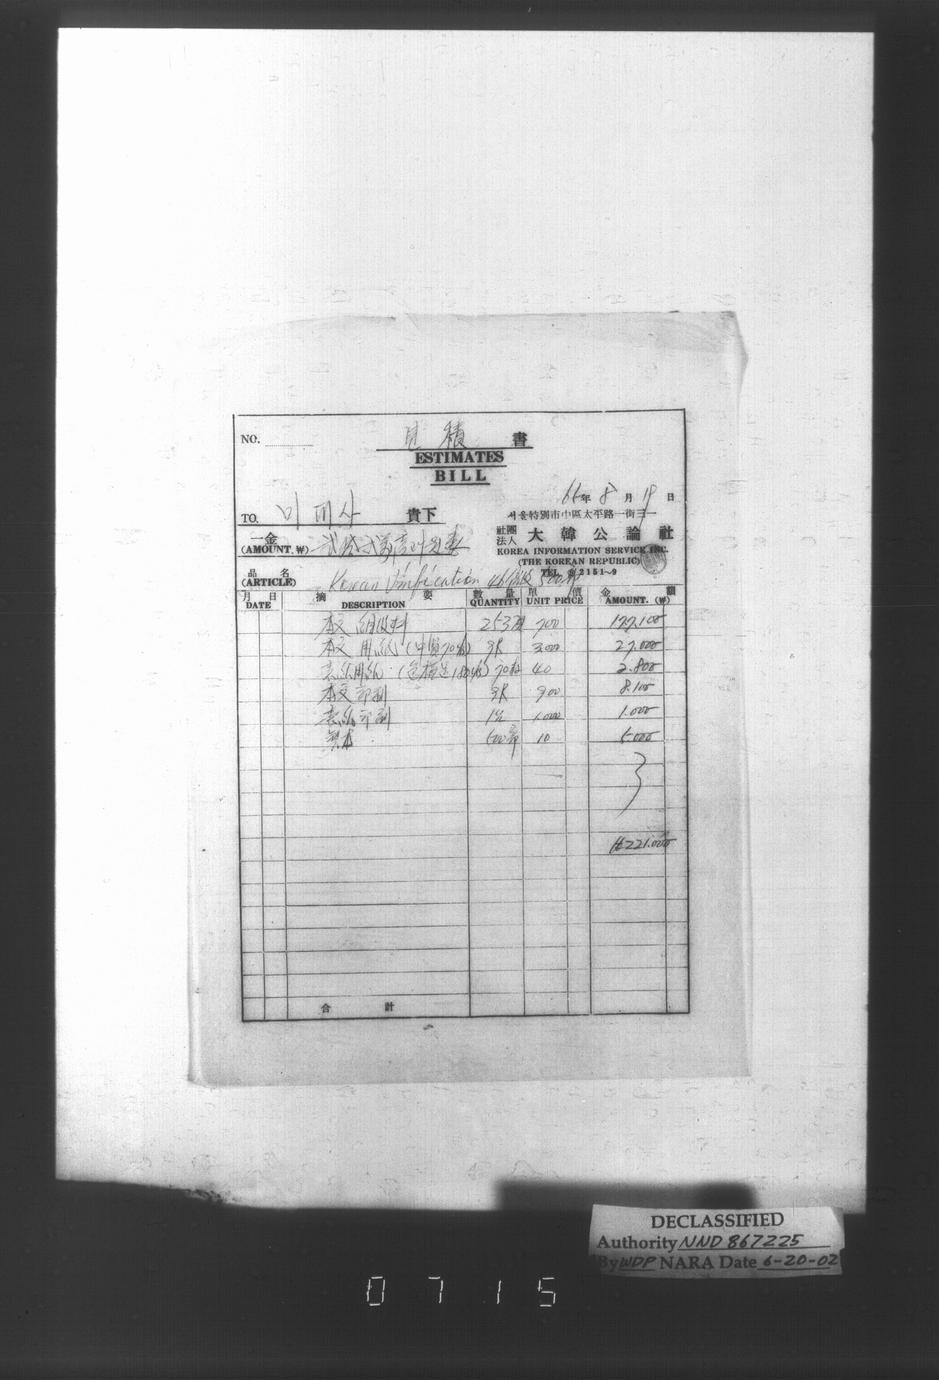 NO.
見積 書
ESTIMATES
BILL
66年 8月 19日
TO. 貴下
서울特別市中區太平路一街三一
一金
(AMOUNT. ₩)
社團法人 大韓公論社
KOREA INFORMATION SERVICE, INC.
(THE KOREAN REPUBLIC)
TEL. 2151~9
品 名
(ARTICLE) Korean Unification 500部
月 日 摘 要 數 量 單 價 金 額
DATE DESCRIPTION QUANTITY UNIT PRICE AMOUNT. (₩)
本文 組版料 253頁 700 177,100
本文 用紙 9R 3,000 27,000
表紙用紙 70 40 2,800
本文印刷 9R 900 8,100
表紙印刷 1,000 1,000
製本 500部 10 5,000
₩221,000
合 計
DECLASSIFIED
Authority NND 867225
By WDP NARA Date 6-20-02
0715